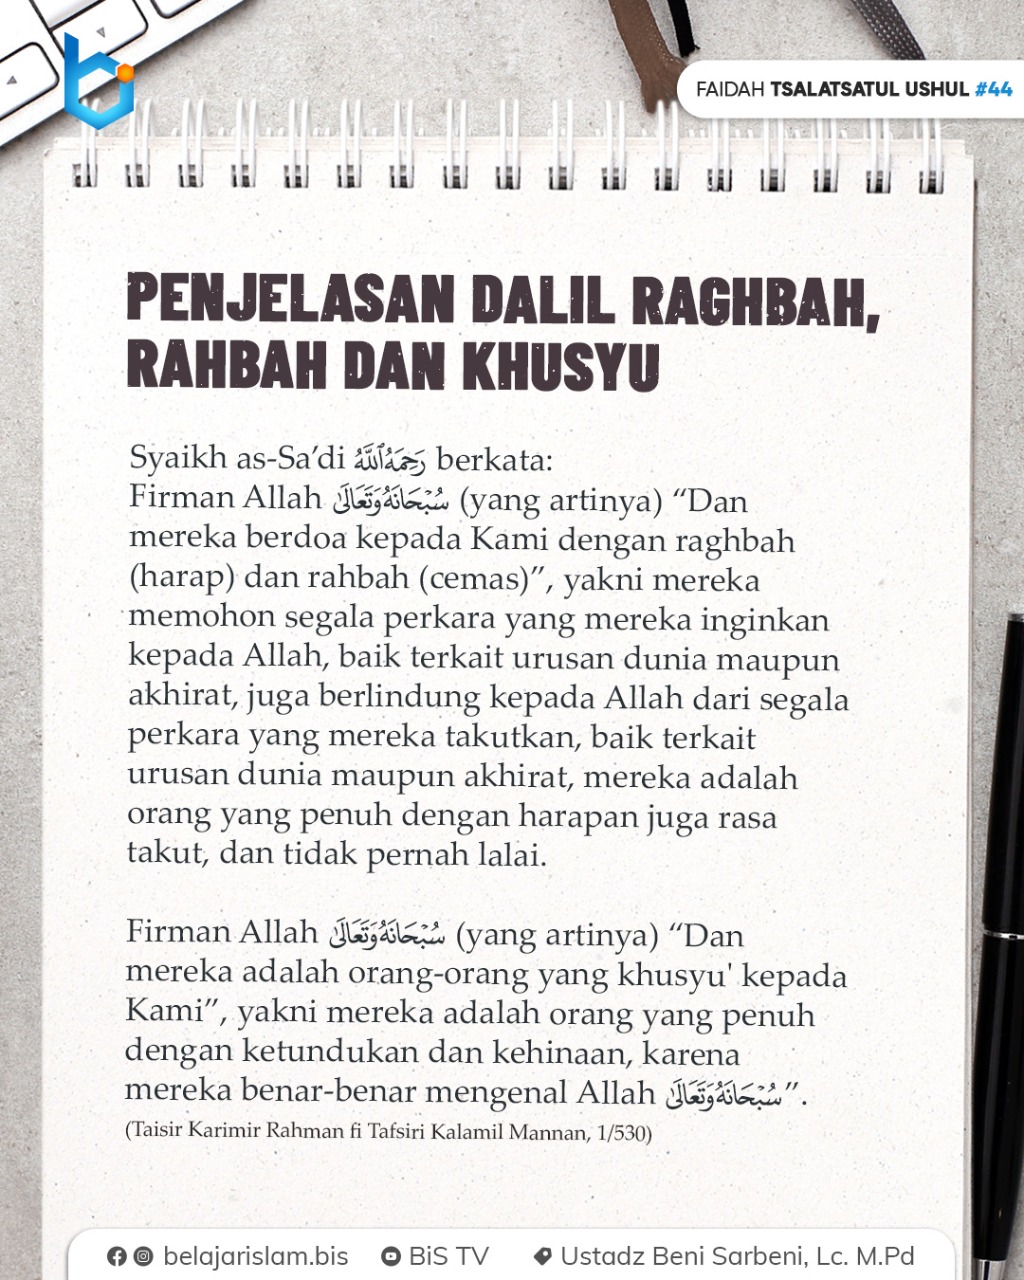 FAIDAH TSALATSATUL USHUL #44
PENJELASAN DALIL RAGHBAH,
RAHBAH DAN KHUSYU
Syaikh as-Sa’di رَحِمَهُ ٱللَّٰهُ berkata:
Firman Allah سُبْحَانَهُ وَتَعَالَىٰ (yang artinya) “Dan
mereka berdoa kepada Kami dengan raghbah
(harap) dan rahbah (cemas)”, yakni mereka
memohon segala perkara yang mereka inginkan
kepada Allah, baik terkait urusan dunia maupun
akhirat, juga berlindung kepada Allah dari segala
perkara yang mereka takutkan, baik terkait
urusan dunia maupun akhirat, mereka adalah
orang yang penuh dengan harapan juga rasa
takut, dan tidak pernah lalai.
Firman Allah سُبْحَانَهُ وَتَعَالَىٰ (yang artinya) “Dan
mereka adalah orang-orang yang khusyu' kepada
Kami”, yakni mereka adalah orang yang penuh
dengan ketundukan dan kehinaan, karena
mereka benar-benar mengenal Allah سُبْحَانَهُ وَتَعَالَىٰ”.
(Taisir Karimir Rahman fi Tafsiri Kalamil Mannan, 1/530)
belajarislam.bis BiS TV Ustadz Beni Sarbeni, Lc. M.Pd